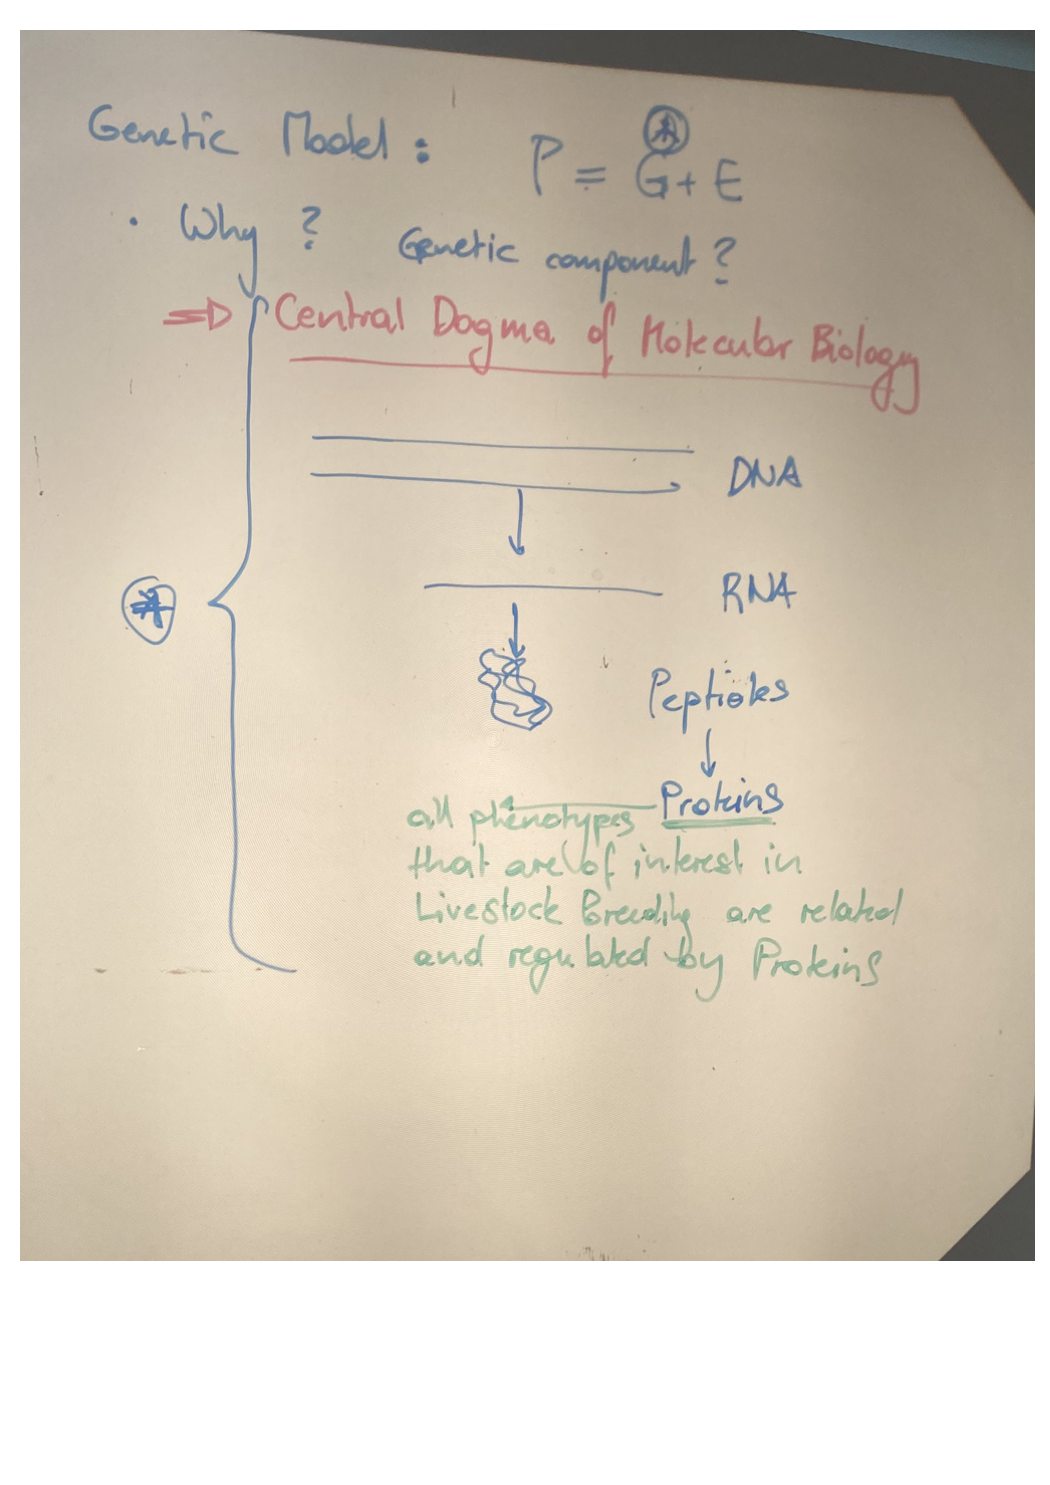 Genetic Model : P = G + E
• Why ? Genetic component ?
⇒ Central Dogma of Molecular Biology
DNA
RNA
Peptides
Proteins
all phenotypes
that are of interest in
Livestock Breeding are related
and regulated by Proteins